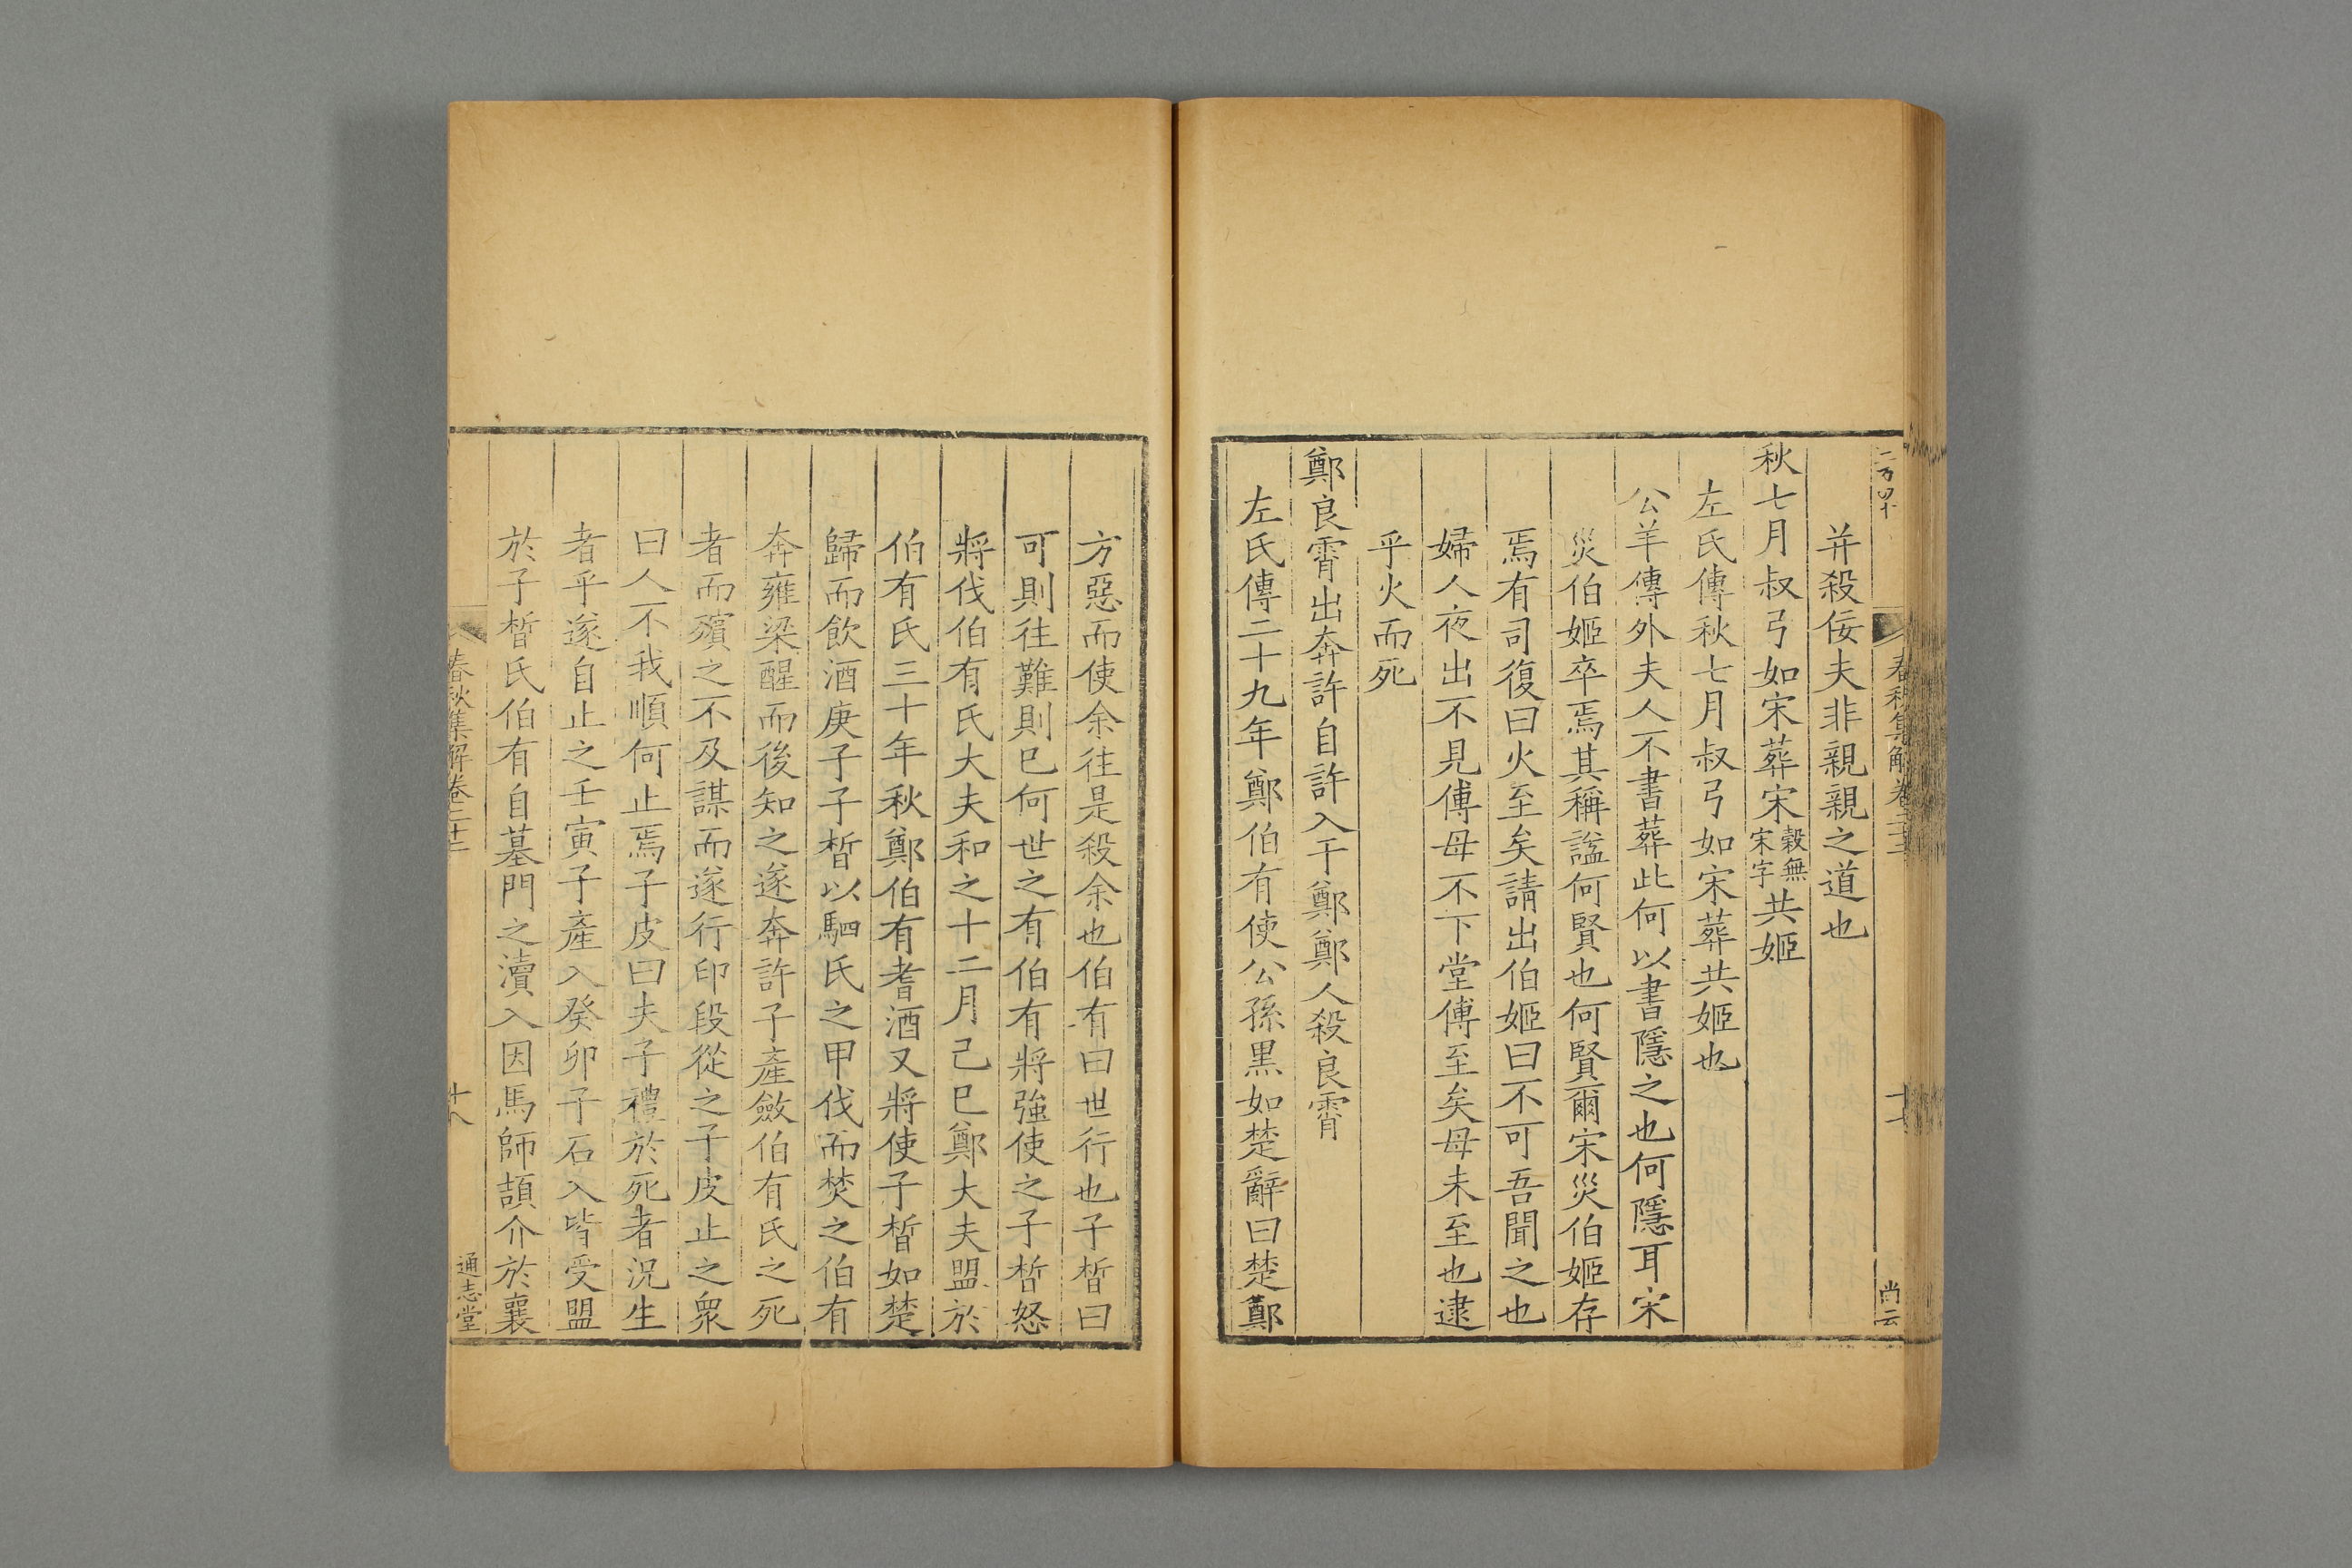 春秋集解卷二十三
尚云
幷殺佞夫非親親之道也
秋七月叔弓如宋葬宋穀無宋字共姬
左氏傳秋七月叔弓如宋葬共姬也
公羊傳外夫人不書葬此何以書隱之也何隱耳宋
災伯姬卒焉其稱諡何賢也何賢爾宋災伯姬存
焉有司復曰火至矣請出伯姬曰不可吾聞之也
婦人夜出不見傅母不下堂傅至矣母未至也逮
乎火而死
鄭良霄出奔許自許入于鄭鄭人殺良霄
左氏傳二十九年鄭伯有使公孫黑如楚辭曰楚鄭
方惡而使余往是殺余也伯有曰世行也子晳曰
可則往難則已何世之有伯有將強使之子晳怒
將伐伯有氏大夫和之十二月己巳鄭大夫盟於
伯有氏三十年秋鄭伯有耆酒又將使子晳如楚
歸而飲酒庚子子晳以駟氏之甲伐而焚之伯有
奔雍梁醒而後知之遂奔許子產斂伯有氏之死
者而殯之不及謀而遂行印段從之子皮止之眾
曰人不我順何止焉子皮曰夫子禮於死者況生
者乎遂自止之壬寅子產入癸卯子石入皆受盟
於子晳氏伯有自墓門之瀆入因馬師頡介於襄
春秋集解卷二十三
十八
通志堂